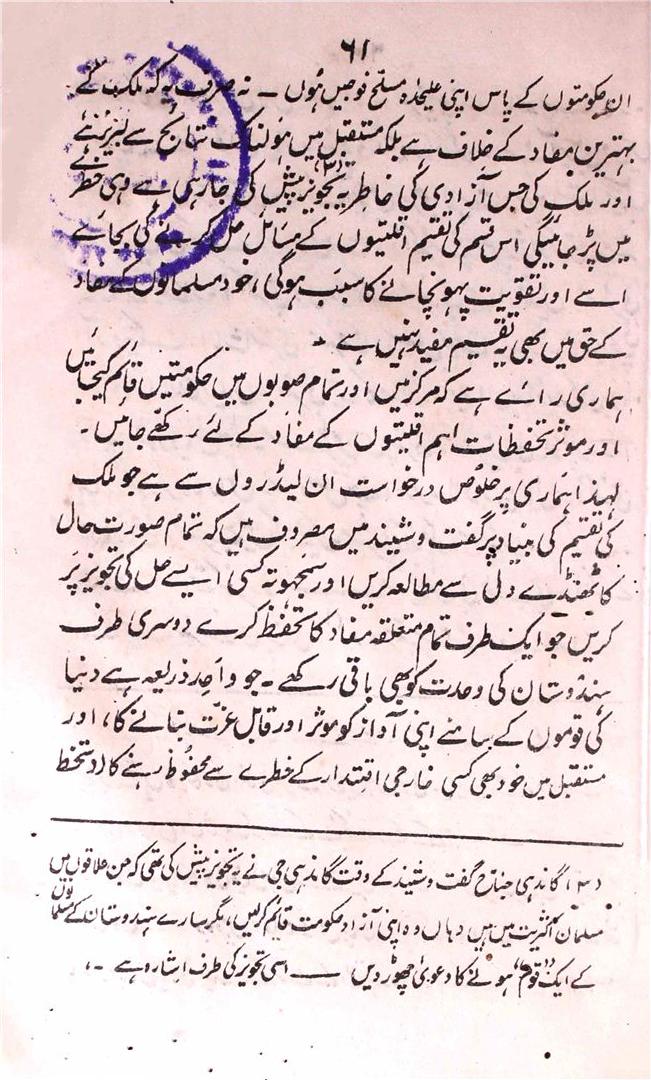 ۶۱
ان حکومتوں کے پاس اپنی علیحدہ مسلح فوجیں ہوں ۔ نہ صرف یہ کہ ملک کے
بہترین مفاد کے خلاف ہے بلکہ مستقبل میں ہولناک نتائج سے لبریز ہے
اور ملک کی جس آزادی کی خاطر یہ تجویز پیش کی جا رہی ہے وہی خطرے
میں پڑ جائیگی اس قسم کی تقسیم اقلیتوں کے مسائل حل کرنے کی بجائے
اسے اور تقویت پہونچانے کا سبب ہوگی ، خود مسلمانوں کے مفاد
کے حق میں بھی یہ تقسیم مفید نہیں ہے ۔
ہماری رائے ہے کہ مرکز میں اور تمام صوبوں میں حکومتیں قائم کیجائیں
اور موثر تحفظات اہم اقلیتوں کے مفاد کے لئے رکھے جائیں ۔
لہٰذا ہماری پرخلوص درخواست ان لیڈروں سے ہے جو ملک
کی تقسیم کی بنیاد پر گفت و شیند میں مصروف ہیں کہ تمام صورت حال
کا ٹھنڈے دل سے مطالعہ کریں اور سمجھوتہ کسی ایسے حل کی تجویز پر
کریں جو ایک طرف تمام متعلقہ مفاد کا تحفظ کرے دوسری طرف
ہندوستان کی وحدت کو بھی باقی رکھے ۔ جو واحد ذریعہ ہے دنیا
کی قوموں کے سامنے اپنی آواز کو موثر اور قابل عزت بنانے کا ، اور
مستقبل میں خود بھی کسی خارجی اقتدار کے خطرے سے محفوظ رہنے کا (دستخط
(۳) گاندہی جناح گفت و شیند کے وقت گاندہی جی نے یہ تجویز پیش کی تھی کہ جن علاقوں میں
مسلمان اکثریت میں ہیں وہاں وہ اپنی آزاد حکومت قائم کرلیں ، مگر سارے ہندوستان کے مسلمانوں
کے ایک "قوم" ہونے کا دعویٰ چھوڑ دیں —— اسی تجویز کی طرف اشارہ ہے ۔